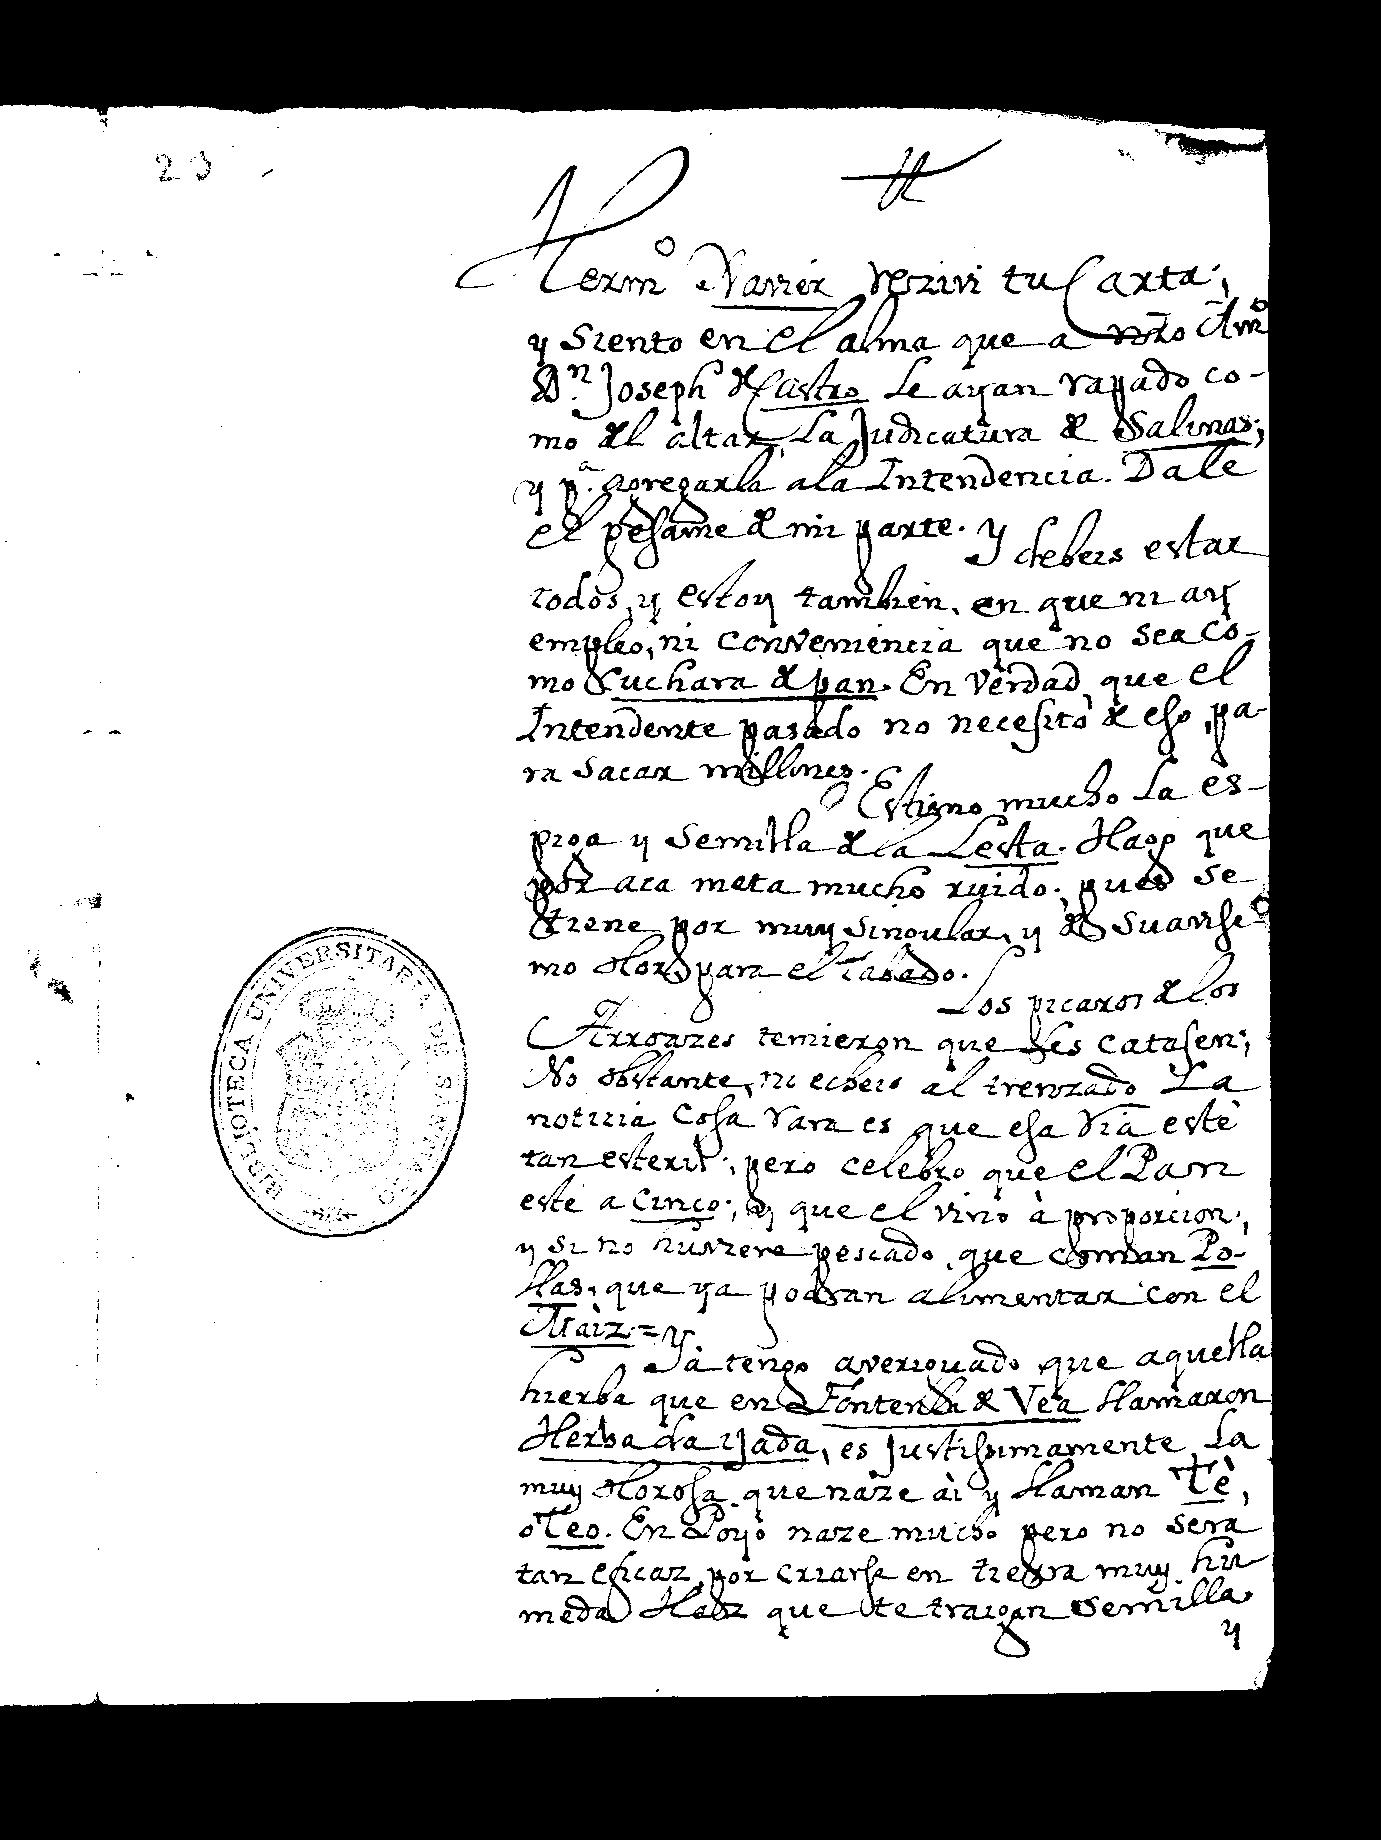 23
Hermº Xavier Reziví tu Carta;
y siento en el alma que a nrō Amº
Dn. Joseph de Castro le ayan rapado co-
mo del altar, la Judicatura de Salinas;
y pª. agregarla a la Intendencia. Dale
el pesame de mi parte. Y debeis estar
todos, y estoy tambien, en que ni ay
empleo, ni conveniencia que no sea co-
mo Cuchara de pan. En verdad, que el
Intendente pasado no necesitò de eso, pa-
ra sacar millones.
Estimo mucho la es-
piga y semilla de la Lesta. Hago que
por aca meta mucho ruido; pues se
tiene por muy singular, y de suavisi-
mo olor para el Tabaco.
Los picaros de los
Arroazes temieron que les catasen;
No obstante, ni echeis al trenzado la
noticia. Cosa rara es que esa Ria estè
tan esteril; pero celebro que el Pan
estè a cinco; y que el vino à proporcion;
y si no huviere pescado, que coman Po-
llas, que ya podran alimentar con el
Maìz = y
Yà tengo averiguado que aquella
hierba que en Fontenla de Vea llamaron
Herba da ijada, es justisimamente la
muy olorosa que naze aì y llaman Tè,
o Teo. En Poyo naze mucho pero no sera
tan eficaz, por criarse en tierra muy hu
meda. Haz que te traigan semilla
y
BIBLIOTECA UNIVERSITARIA DE SANTIAGO